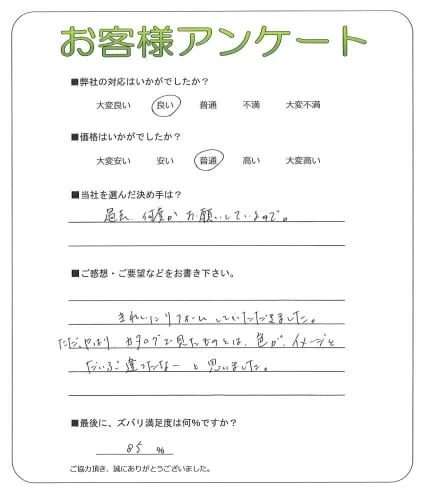 お客様アンケート
■弊社の対応はいかがでしたか？
大変良い 良い 普通 不満 大変不満
■価格はいかがでしたか？
大変安い 安い 普通 高い 大変高い
■当社を選んだ決め手は？
過去、何度か お願いしているので。
■ご感想・ご要望などをお書き下さい。
きれいにリフォームしていただきました。
ただ、やはり、カタログで見たものとは、色が、イメージと
だいぶ違ったなーと思いました。
■最後に、ズバリ満足度は何%ですか？
85 %
ご協力頂き、誠にありがとうございました。